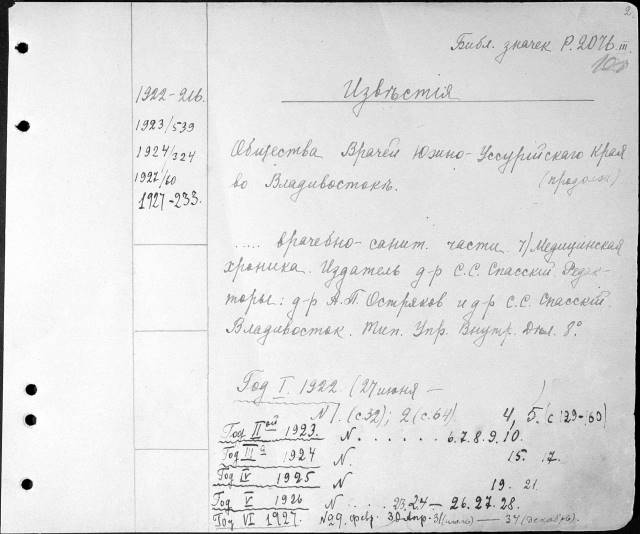 2
Библ. значек Р. 2076 III
Извѣстія
1922-216.
1923/539
1924/324
1927/60
1927-233.
Общества Врачей Южно-Уссурійскаго Края
во Владивостокѣ.
(продолж)
..... врачебно-санит. части 7/Медицинская
хроника. Издатель д-р С.С. Спасскій. Редак-
торы: д-р А.П. Остряков и д-р С.С. Спасскій.
Владивосток. Тип. Упр. Внутр. Дѣл. 8°.
Год I. 1922. (27 июня — )
N 1. (с 32); 2 (с. 64) 4, 5. (с 129-160)
Год II ой 1923. N . . . . . . 6. 7. 8. 9. 10.
Год III й 1924 N. 15. 17.
Год IV 1925 N 19. 21
Год V 1926 N . . . . 23. 24 — 26. 27. 28.
Год VI 1927. №29. февр. 30 Апр. 31 (июль) — 34 (декабрь).